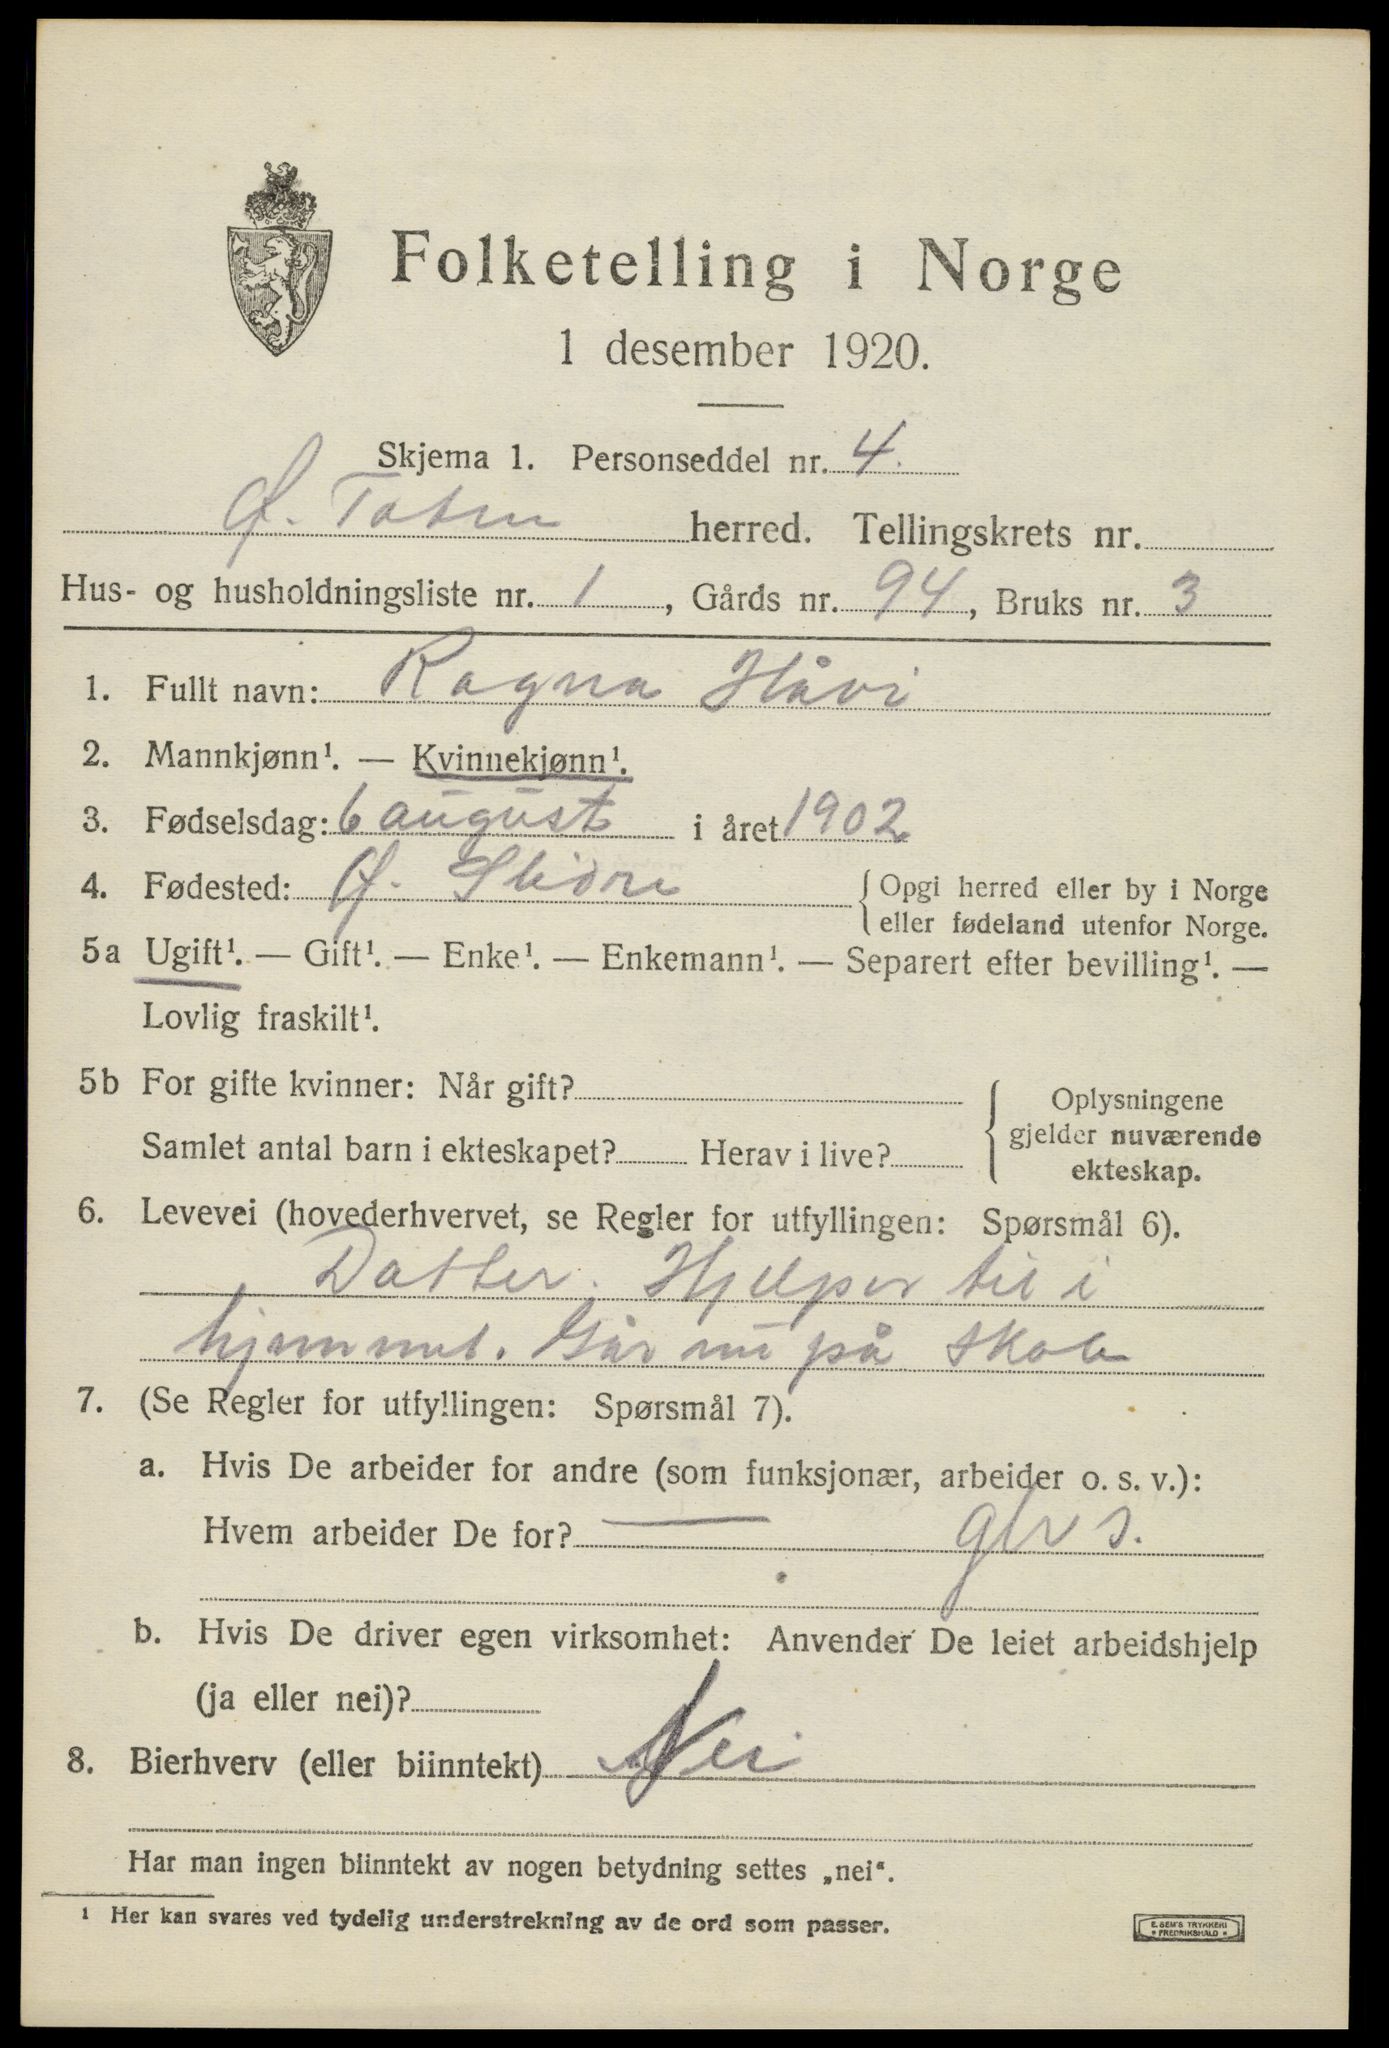 Folketelling i Norge
1 desember 1920.
Skjema 1. Personseddel nr. 4.
Ø. Toten herred. Tellingskrets nr.
Hus- og husholdningsliste nr. 1, Gårds nr. 94, Bruks nr. 3
1. Fullt navn: Ragna Håvi
2. Mannkjønn¹. — Kvinnekjønn¹.
3. Fødselsdag: 6 august i året 1902
4. Fødested: Ø. Slidre {Opgi herred eller by i Norge
eller fødeland utenfor Norge.
5a Ugift¹. — Gift¹. — Enke¹. — Enkemann¹. — Separert efter bevilling¹. —
Lovlig fraskilt¹.
5b For gifte kvinner: Når gift?
Samlet antal barn i ekteskapet? Herav i live?
Oplysningene
gjelder nuværende
ekteskap.
6. Levevei (hovederhvervet, se Regler for utfyllingen: Spørsmål 6).
Datter. Hjelper til i
hjemmet. Går nu på skole
7. (Se Regler for utfyllingen: Spørsmål 7).
a. Hvis De arbeider for andre (som funksjonær, arbeider o. s. v.):
Hvem arbeider De for? —
b. Hvis De driver egen virksomhet: Anvender De leiet arbeidshjelp
(ja eller nei)?
8. Bierhverv (eller biinntekt) Nei
Har man ingen biinntekt av nogen betydning settes „nei“.
¹ Her kan svares ved tydelig understrekning av de ord som passer.
E. SEM'S TRYKKERI
* FREDRIKSHALD *